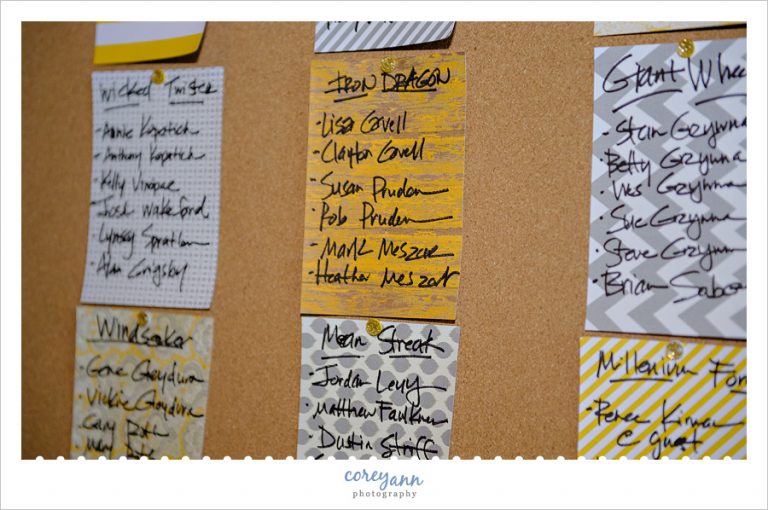 Wicked Twister
Annie Kopatich
Anthony Kopatich
Kelly
Josh Wakeford
Lynsey Spratlen
Alan Grigsby
Windseeker
Gene Gaydura
Vickie Gaydura
Gary Roth
Mary Roth
IRON DRAGON
Lisa Covell
Clayton Covell
Susan Pruden
Rob Pruden
Mark Meszar
Heather Meszar
Mean Streak
Jordan Levy
Matthew Faulkner
Dustin Striff
Giant Whee
Stan Grzywna
Betty Grzywna
Wes Grzywna
Sue Grzywna
Steve Grzywna
Brian Sabo
Millenium For
Renee Kirwan
& guest
coreyann
photography